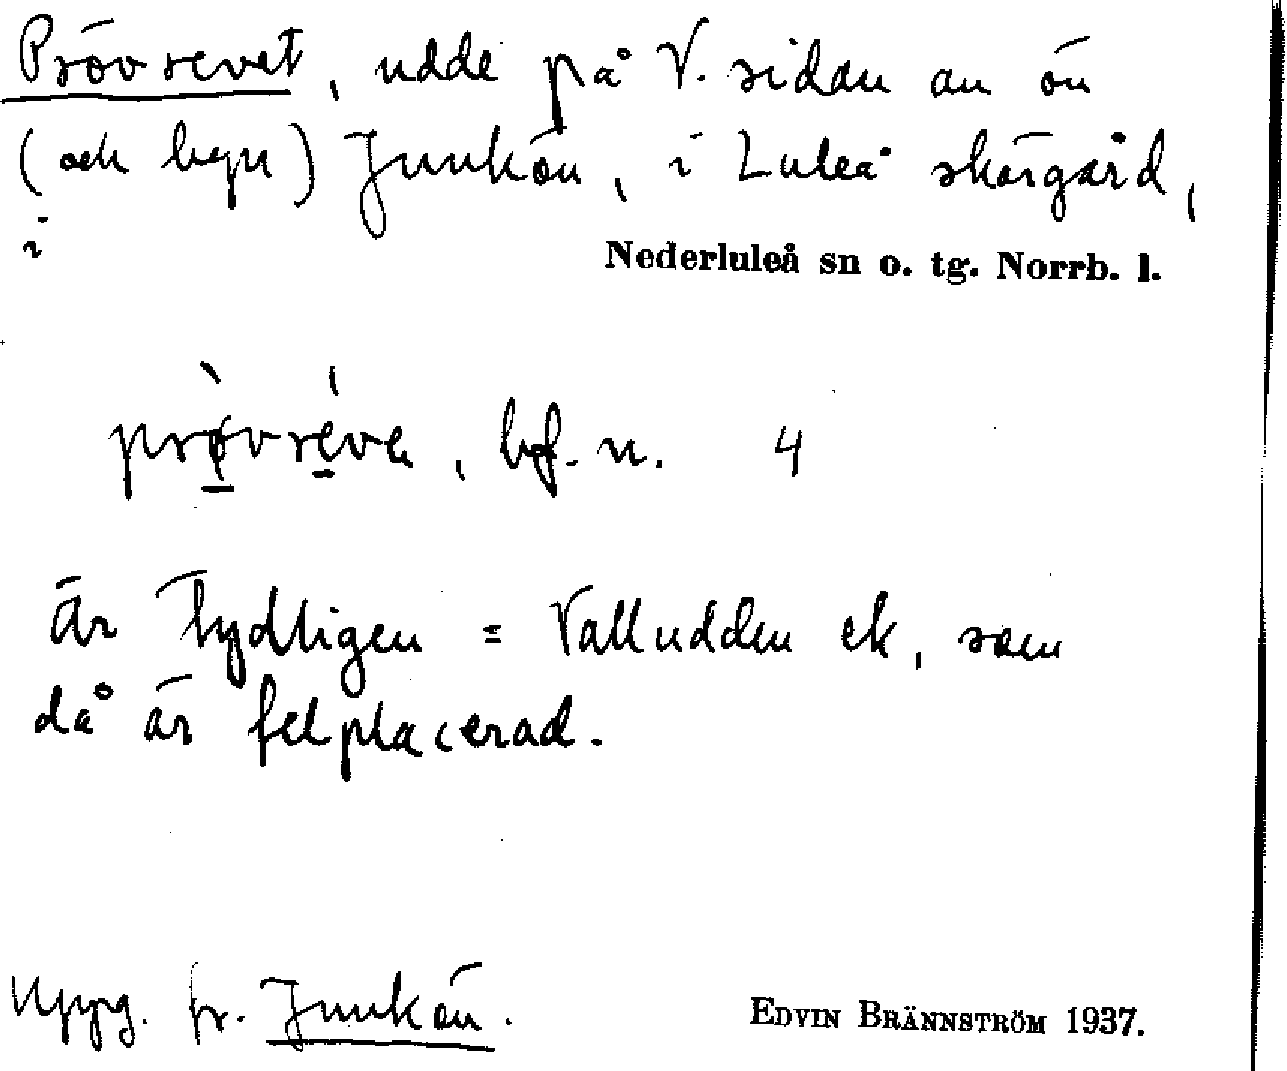 Prövrevet, udde på V. sidan av ön
(och byn) Junkön, i Luleå skärgård,
i
Nederluleå sn o. tg. Norrb. l.
bf. n. 4
är tydligen = Valludden ek, som
då är felplacerad.
Uppg. fr. Junkön.
EDVIN BRÄNNSTRÖM 1937.